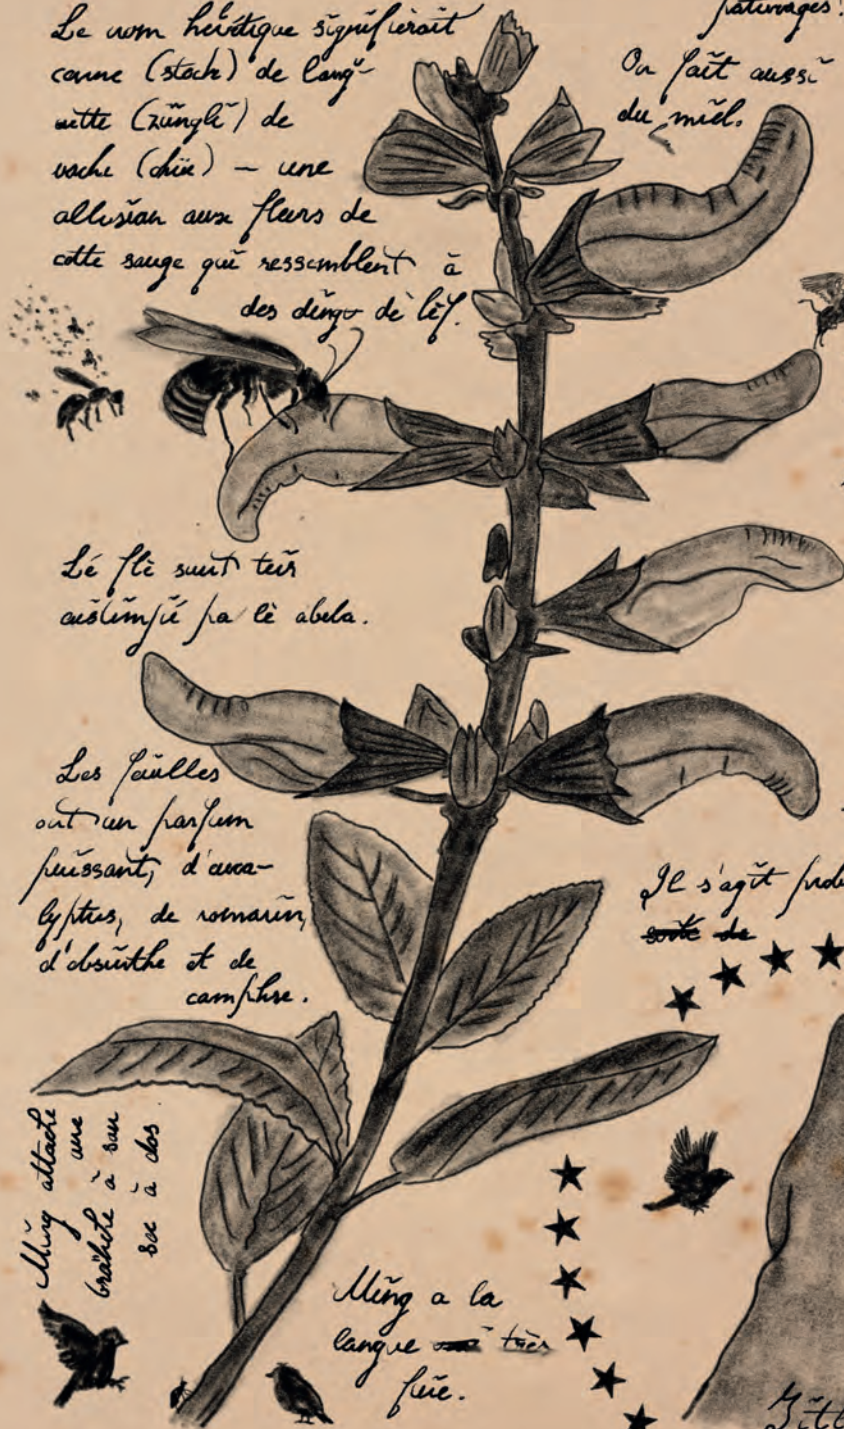 Le nom signifierait
canne (stock) de lang-
uette (züngli) de
vache (chüe) – une
allusion aux fleurs de
cette sauge qui ressemblent à
des de
pâturages.
On fait aussi
du miel.
Lé flè sunt
pa lè abela.
Les
ont un parfum
puissant, d'euca-
lyptus, de romarin,
d'absinthe et de
camphre.
Il s'agit
sorte de
Ming attache
une
à son
sac à dos
Ming a la
langue très
fine.